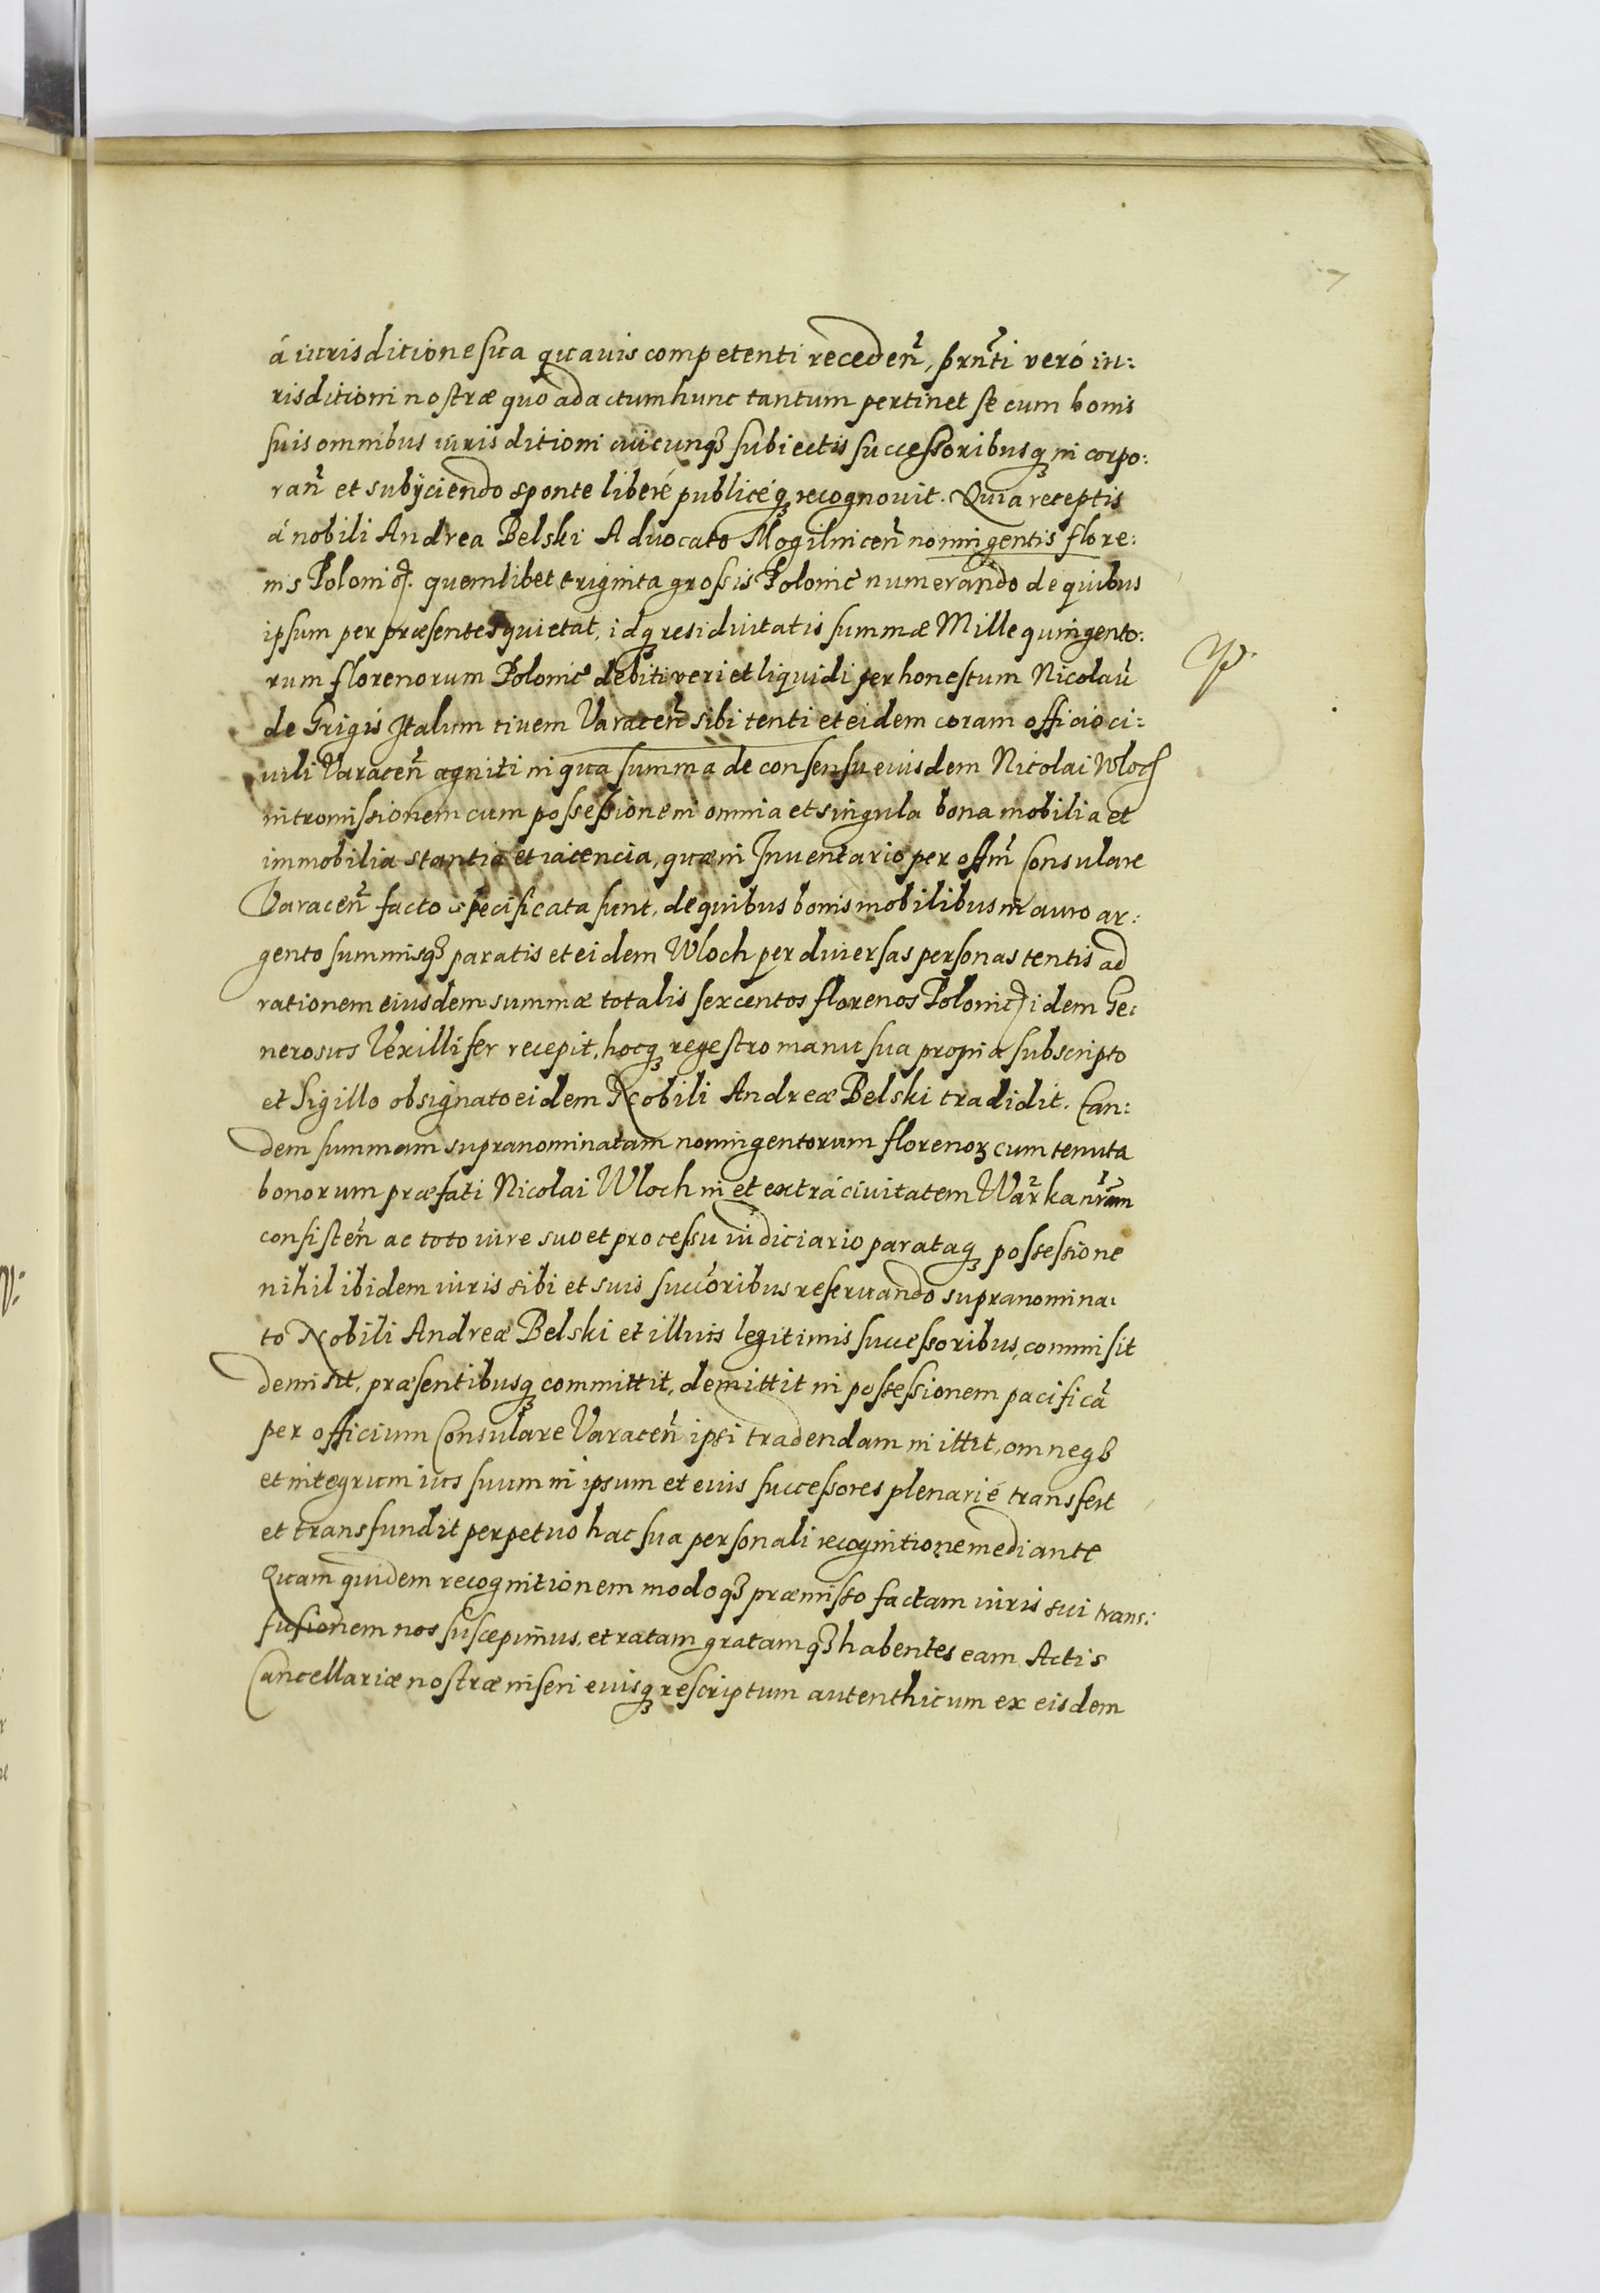 á iurisditione sua quavis competenti receden̄, prn̄ti veró iu:
risditioni nostræ quo ad actum hunc tantum pertinet se cum bonis
suis omnibus iurisditioni cuicunqꝫ subiectis successoribusqꝫ incorpo:
ran̄ et subÿciendo sponte liberé publicéqꝫ recognovit. Quia receptis
á nobili Andrea Belski Advocato Mogilnicen̄ noningentis flore:
nis Polonic̄. quemlibet triginta grossis Polonic̄ numerando de quibus
ipsum per præsentes quietat, idqꝫ residuitatis summæ Mille quingento:
rum florenorum Polonic̄ debiti veri et liquidi per honestum Nicolau̅
de Grigis Italum civem Varacen̄ sibi tenti et eidem coram officio ci:
vili Varacen̄ agniti in qua summa de consensu eiusdem Nicolai Wloch
intromissionem cum possessione in omnia et singula bona mobilia et
immobilia stantia et iacencia, quæ in Inventario per offm̄ Consulare
Varacen̄ facto specificata sunt, de quibus bonis mobilibus in auro ar:
gento summisqꝫ paratis et eidem Wloch per diversas personas tentis ad
rationem eiusdem summæ totalis sexcentos florenos Polonic̄ idem Ge:
nerosus Vexillifer recepit, hocqꝫ regestro manu sua propria subscripto
et sigillo obsignato eidem Nobili Andreæ Belski tradidit. Ean:
dem summam supranominatam noningentorum florenoꝝ cum tenuta
bonorum præfati Nicolai Wloch in et extrá civitatem Warkan̄
consisten̄ ac toto iure suo et processu iudiciario parataqꝫ possessione
nihil ibidem iuris sibi et suis succ̄oribus reservando supranomina:
to Nobili Andreæ Belski et illius legitimis successoribus, commisit
demisit, præsentibusqꝫ committit, demittit in possessionem pacificā
per officium Consulare Varacen̄ ipsi tradendam mittit, omneqꝫ
et integrum ius suum in ipsum et eius successores plenarié transfert
et transfundit perpetuo hac sua personali recognitione mediante
Quam quidem recognitionem modoqꝫ præmisso factam iuris sui trans:
fusionem nos suscepimus, et ratam gratamqꝫ habentes eam Actis
Cancellariæ nostræ inseri eiusqꝫ rescriptum autenthicum ex eisdem